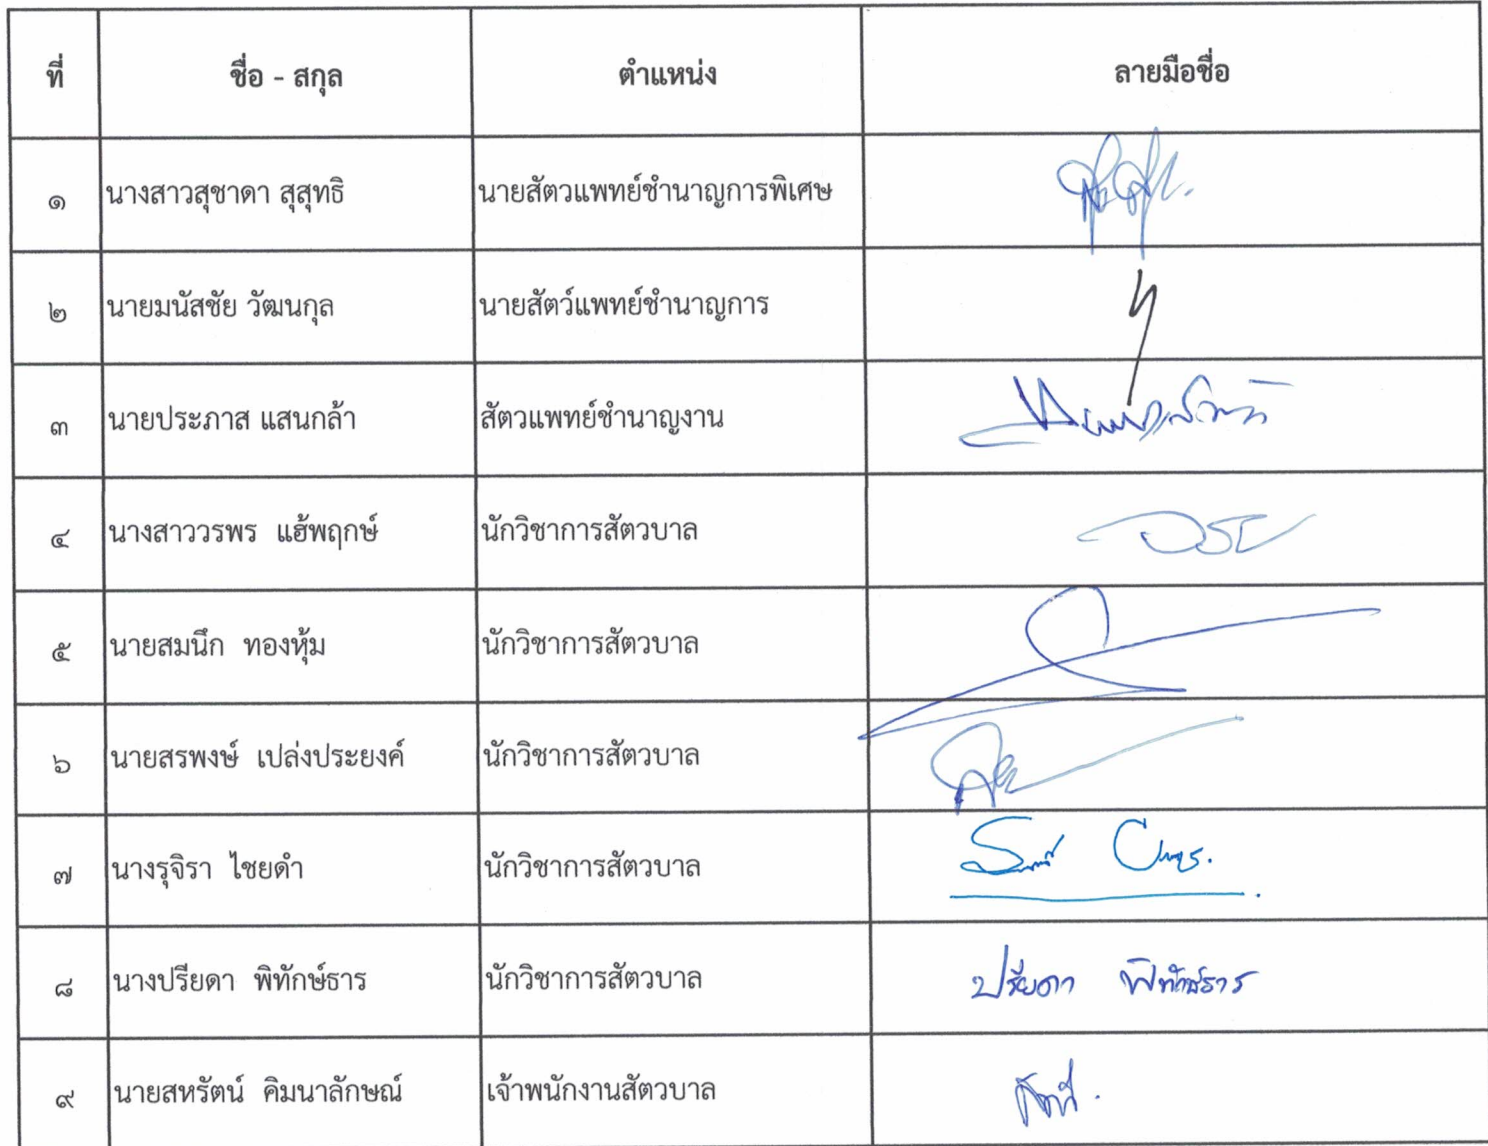 ที่ ชื่อ - สกุล ตำแหน่ง ลายมือชื่อ
๑ นางสาวสุชาดา สุสุทธิ นายสัตวแพทย์ชำนาญการพิเศษ
๒ นายมนัสชัย วัฒนกุล นายสัตว์แพทย์ชำนาญการ
๓ นายประภาส แสนกล้า สัตวแพทย์ชำนาญงาน
๔ นางสาววรพร แฮ้พฤกษ์ นักวิชาการสัตวบาล
๕ นายสมนึก ทองหุ้ม นักวิชาการสัตวบาล
๖ นายสรพงษ์ เปล่งประยงค์ นักวิชาการสัตวบาล
๗ นางรุจิรา ไชยดำ นักวิชาการสัตวบาล
๘ นางปรียดา พิทักษ์ธาร นักวิชาการสัตวบาล ปรียดา พิทักษ์ธาร
๙ นายสหรัตน์ คิมนาลักษณ์ เจ้าพนักงานสัตวบาล